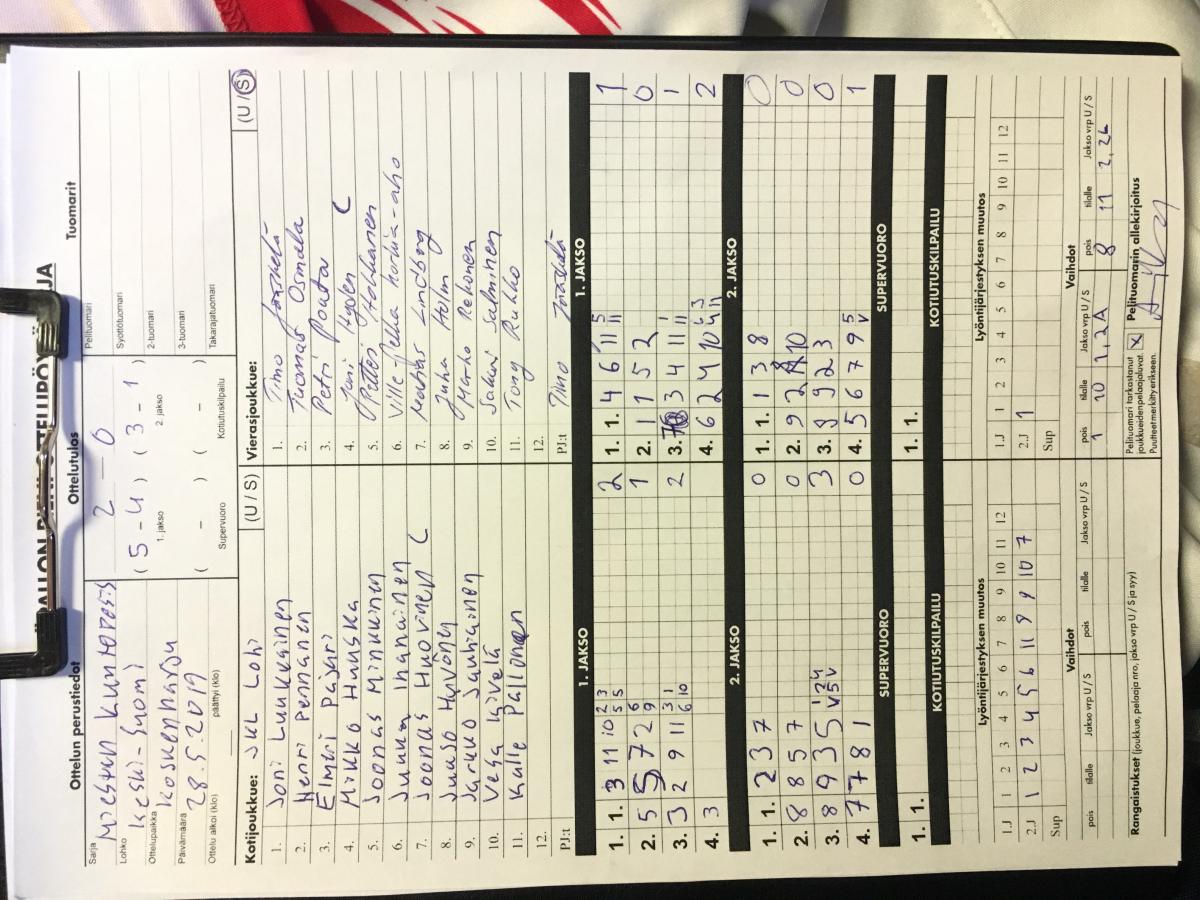 Ottelun perustiedot
Sarja Miesten Kuntopesis
Lohko Keski-Suomi
Ottelupaikka Koskenharju
Päivämäärä 28.5.2019
Ottelu alkoi (klo) päättyi (klo)
Ottelutulos
2 – 0
( 5 – 4 ) ( 3 – 1 )
1. jakso 2. jakso
( – ) ( – )
Supervuoro Kotiutuskilpailu
Tuomarit
Pelituomari
Syöttötuomari
2-tuomari
3-tuomari
Takarajatuomari
Kotijoukkue: JKL Lohi (U / S)
1. Joni Luukkainen
2. Henri Pennanen
3. Elmeri Pajari
4. Mikko Hunska
5. Joonas Minkkinen
6. Jukka Ihanainen
7. Joonas Huovinen C
8. Juuso Hyvönen
9. Jarkko Jauhiainen
10. Vesa Kivelä
11. Kalle Pallonen
12.
PJ:t
Vierasjoukkue: (U / S)
1. Timo
2. Tuomas Osmala
3. Petri Pouta
4. Jani Hyden C
5. Petteri Hokkanen
6. Ville-Pekka
7. Markus Lindborg
8. Juha Holm
9. Marko Rekonen
10. Sakari Salminen
11. Tony Ruhko
12.
PJ:t Timo
1. JAKSO
1. 1. 3 11 10 2 3 5 5 2
2. 5 5 7 2 6 9 1
3. 3 2 9 11 3 1 6 10 2
4. 3
1. JAKSO
1. 1. 4 6 11 5 11 1
2. 1 1 5 2 0
3. 3 4 11 1 11 1
4. 6 2 4 10 2
2. JAKSO
1. 1. 2 3 7 0
2. 8 8 5 7 0
3. 8 9 3 5 3
4. 7 7 8 1 0
2. JAKSO
1. 1. 1 3 8 0
2. 9 2 10 0
3. 3 9 2 3 0
4. 5 6 7 9 5 V 1
SUPERVUORO
1. 1.
SUPERVUORO
1. 1.
KOTIUTUSKILPAILU
KOTIUTUSKILPAILU
Lyöntijärjestyksen muutos
1.J 1 2 3 4 5 6 7 8 9 10 11 12
2.J 1 2 3 4 5 6 11 9 9 10 7
Sup
Lyöntijärjestyksen muutos
1.J 1 2 3 4 5 6 7 8 9 10 11 12
2.J 1
Sup
Vaihdot
pois tilalle Jakso vrp U / S pois tilalle Jakso vrp U / S
Vaihdot
pois tilalle Jakso vrp U / S pois tilalle Jakso vrp U / S
1 10 1, 2A 8 11 2, 2L
Rangaistukset (joukkue, pelaaja nro, jakso vrp U / S ja syy)
Pelituomari tarkastanut X
joukkueidenpelaajaluvat.
Puutteet merkitty erikseen.
Pelituomarin allekirjoitus